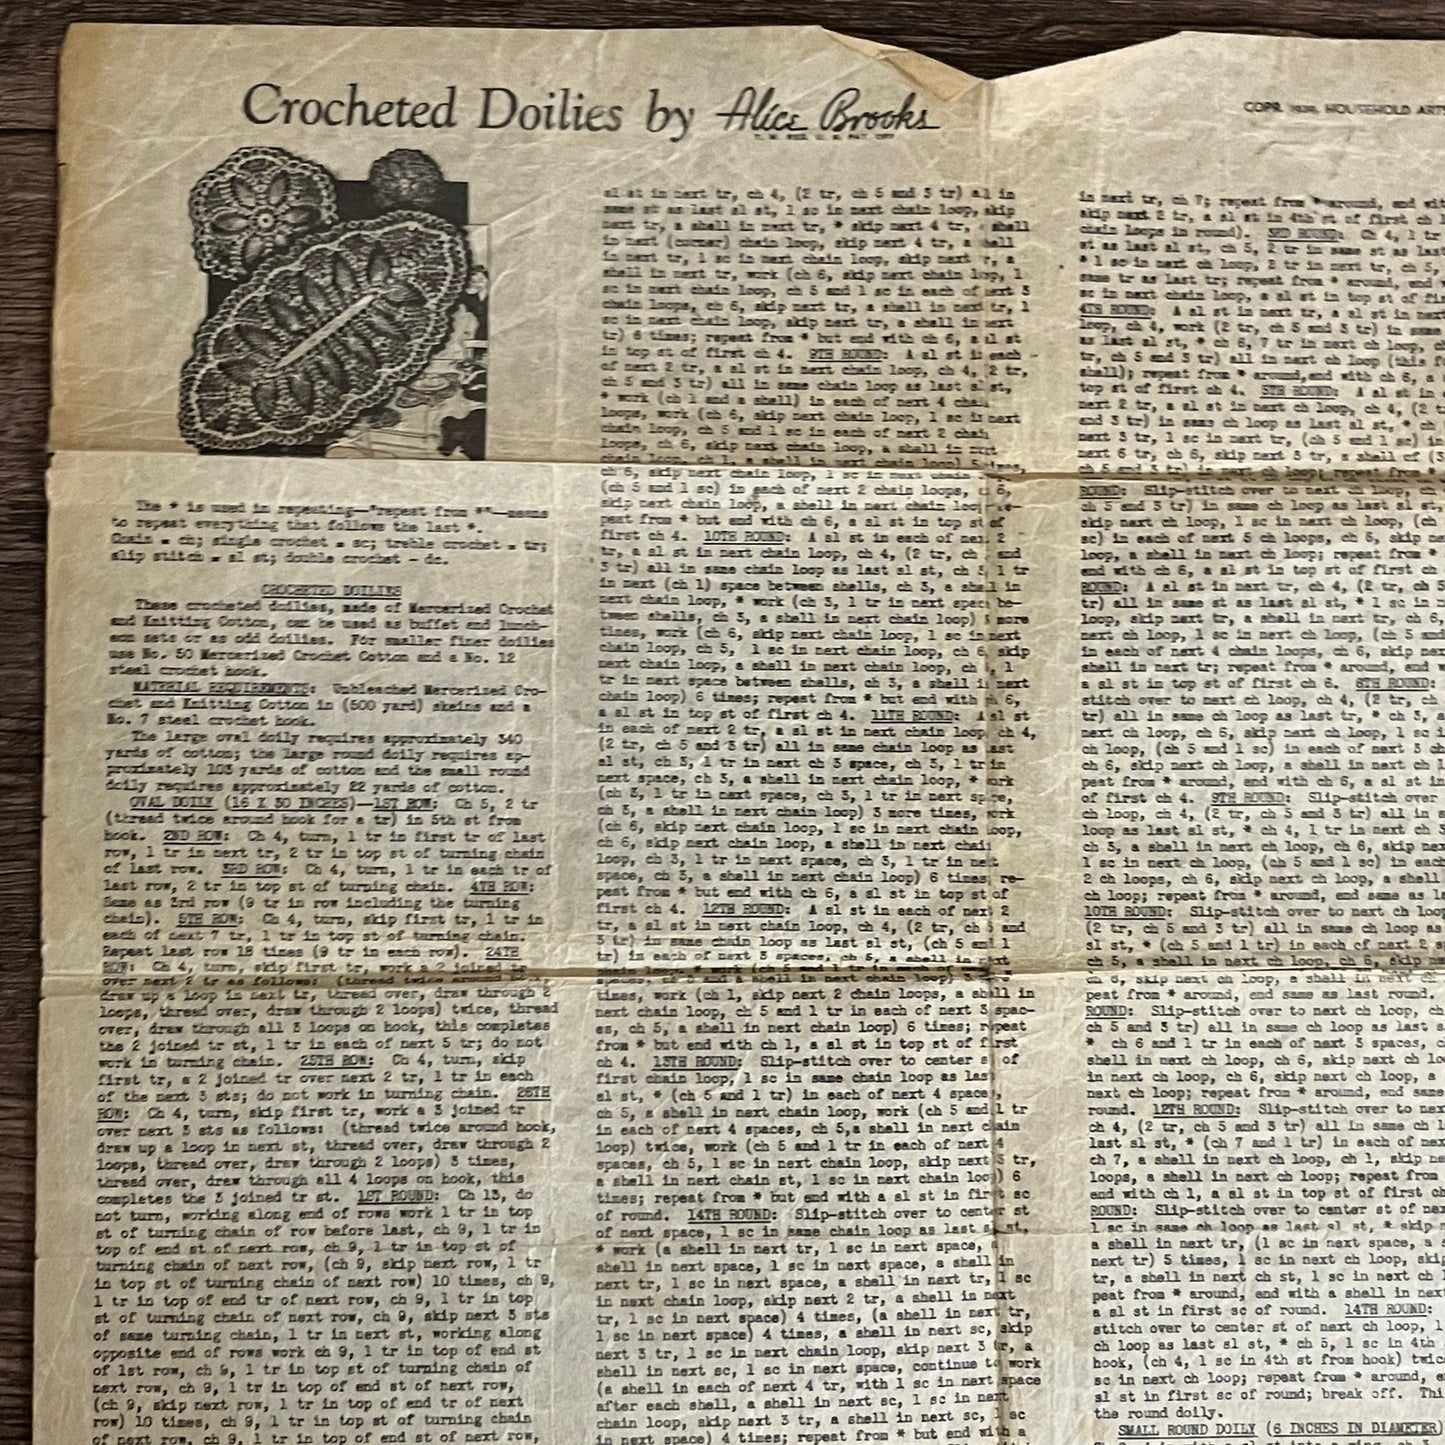 Crocheted Doilies by Alice Brooks
COPR. HOUSEHOLD ART
The * is used in repeating—"repeat from *"—means
to repeat everything that follows the last *.
Chain = ch; single crochet = sc; treble crochet = tr;
slip stitch = sl st; double crochet - dc.
CROCHETED DOILIES
These crocheted doilies, made of Mercerized Crochet
and Knitting Cotton, can be used as buffet and lunch-
eon sets or as odd doilies. For smaller finer doilies
use No. 50 Mercerized Crochet Cotton and a No. 12
steel crochet hook.
MATERIAL REQUIREMENTS: Unbleached Mercerized Cro-
chet and Knitting Cotton in (500 yard) skeins and a
No. 7 steel crochet hook.
The large oval doily requires approximately 340
yards of cotton; the large round doily requires ap-
proximately 103 yards of cotton and the small round
doily requires approximately 22 yards of cotton.
OVAL DOILY (16 X 30 INCHES)—1ST ROW: Ch 5, 2 tr
(thread twice around hook for a tr) in 5th st from
hook. 2ND ROW: Ch 4, turn, 1 tr in first tr of last
row, 1 tr in next tr, 2 tr in top st of turning chain
of last row. 3RD ROW: Ch 4, turn, 1 tr in each tr of
last row, 2 tr in top st of turning chain. 4TH ROW:
Same as 3rd row (9 tr in row including the turning
chain). 5TH ROW: Ch 4, turn, skip first tr, 1 tr in
each of next 7 tr, 1 tr in top st of turning chain.
Repeat last row 18 times (9 tr in each row). 24TH
ROW: Ch 4, turn, skip first tr, work a 2 joined tr
over next 2 tr as follows: (thread twice around
draw up a loop in next tr, thread over, draw through 2
loops, thread over, draw through 2 loops) twice, thread
over, draw through all 3 loops on hook, this completes
the 2 joined tr st, 1 tr in each of next 5 tr; do not
work in turning chain. 25TH ROW: Ch 4, turn, skip
first tr, a 2 joined tr over next 2 tr, 1 tr in each
of the next 3 sts; do not work in turning chain. 26TH
ROW: Ch 4, turn, skip first tr, work a 3 joined tr
over next 3 sts as follows: (thread twice around hook,
draw up a loop in next st, thread over, draw through 2
loops, thread over, draw through 2 loops) 3 times,
thread over, draw through all 4 loops on hook, this
completes the 3 joined tr st. 1ST ROUND: Ch 13, do
not turn, working along end of rows work 1 tr in top
st of turning chain of row before last, ch 9, 1 tr in
top of end st of next row, ch 9, 1 tr in top st of
turning chain of next row, (ch 9, skip next row, 1 tr
in top st of turning chain of next row) 10 times, ch 9,
1 tr in top of end tr of next row, ch 9, 1 tr in top
st of turning chain of next row, ch 9, skip next 3 sts
of same turning chain, 1 tr in next st, working along
opposite end of rows work ch 9, 1 tr in top of end st
of 1st row, ch 9, 1 tr in top st of turning chain of
next row, ch 9, 1 tr in top of end st of next row,
(ch 9, skip next row, 1 tr in top of end tr of next
row) 10 times, ch 9, 1 tr in top st of turning chain
of next row, ch 9, 1 tr in top of end st of next row,
sl st in next tr, ch 4, (2 tr, ch 5 and 3 tr) all in
same st as last sl st, 1 sc in next chain loop, skip
next tr, a shell in next tr, * skip next 4 tr, shell
in next (corner) chain loop, skip next 4 tr, a shell
in next tr, 1 sc in next chain loop, skip next tr, a
shell in next tr, work (ch 6, skip next chain loop, 1
sc in next chain loop, ch 5 and 1 sc in each of next 3
chain loops, ch 6, skip next tr, a shell in next tr, 1
sc in next chain loop, skip next tr, a shell in next
tr) 6 times; repeat from * but end with ch 6, a sl st
in top st of first ch 4. 9TH ROUND: A sl st in each
of next 2 tr, a sl st in next chain loop, ch 4, (2 tr,
ch 5 and 3 tr) all in same chain loop as last sl st,
* work (ch 1 and a shell) in each of next 4 chain
loops, work (ch 6, skip next chain loop, 1 sc in next
chain loop, ch 5 and 1 sc in each of next 2 chain
loops, ch 6, skip next chain loop, a shell in next
chain loop, ch 1, a shell in next chain loop) 5 times,
ch 6, skip next chain loop, 1 sc in next chain loop
(ch 5 and 1 sc) in each of next 2 chain loops, ch 6,
skip next chain loop, a shell in next chain loop re-
peat from * but end with ch 6, a sl st in top st of
first ch 4. 10TH ROUND: A sl st in each of next 2
tr, a sl st in next chain loop, ch 4, (2 tr, ch and
3 tr) all in same chain loop as last sl st, ch 3, 1 tr
in next (ch 1) space between shells, ch 3, a shell in
next chain loop, * work (ch 3, 1 tr in next space be-
tween shells, ch 3, a shell in next chain loop) 3 more
times, work (ch 6, skip next chain loop, 1 sc in next
chain loop, ch 5, 1 sc in next chain loop, ch 6, skip
next chain loop, a shell in next chain loop, ch 3, 1
tr in next space between shells, ch 3, a shell in next
chain loop) 6 times; repeat from * but end with ch 6,
a sl st in top st of first ch 4. 11TH ROUND: A sl st
in each of next 2 tr, a sl st in next chain loop, ch 4,
(2 tr, ch 5 and 3 tr) all in same chain loop as last
sl st, ch 3, 1 tr in next ch 3 space, ch 3, 1 tr in
next space, ch 3, a shell in next chain loop, * work
(ch 3, 1 tr in next space, ch 3, 1 tr in next space,
ch 3, a shell in next chain loop) 3 more times, work
(ch 6, skip next chain loop, 1 sc in next chain loop,
ch 6, skip next chain loop, a shell in next chain
loop, ch 3, 1 tr in next space, ch 3, 1 tr in next
space, ch 3, a shell in next chain loop) 6 times; re-
peat from * but end with ch 6, a sl st in top st of
first ch 4. 12TH ROUND: A sl st in each of next 2
tr, a sl st in next chain loop, ch 4, (2 tr, ch 5 and
3 tr) in same chain loop as last sl st, (ch 5 and 1
tr) in each of next 3 spaces, ch 5, a shell in next
chain loop, * work (ch 5 and 1 tr in each of next
spaces, ch 5 and a shell in next chain loop) 3
times, work (ch 1, skip next 2 chain loops, a shell in
next chain loop, ch 5 and 1 tr in each of next 3 spac-
es, ch 5, a shell in next chain loop) 6 times; repeat
from * but end with ch 1, a sl st in top st of first
ch 4. 13TH ROUND: Slip-stitch over to center st of
first chain loop, 1 sc in same chain loop as last
sl st, * (ch 5 and 1 tr) in each of next 4 spaces,
ch 5, a shell in next chain loop, work (ch 5 and 1 tr
in each of next 4 spaces, ch 5, a shell in next chain
loop) twice, work (ch 5 and 1 tr in each of next 4
spaces, ch 5, 1 sc in next chain loop, skip next 3 tr,
a shell in next chain st, 1 sc in next chain loop) 6
times; repeat from * but end with a sl st in first sc
of round. 14TH ROUND: Slip-stitch over to center st
of next space, 1 sc in same chain loop as last sl st,
* work (a shell in next tr, 1 sc in next space, a
shell in next space, 1 sc in next space, a shell in
next tr, 1 sc in next space, a shell in next tr, 1 sc
in next chain loop, skip next 2 tr, a shell in next
tr, 1 sc in next space) 4 times, (a shell in next tr,
1 sc in next space) 4 times, a shell in next sc, skip
next 3 tr, 1 sc in next chain loop, skip next 3 tr, a
shell in next sc, 1 sc in next space, continue to work
(a shell in each of next 4 tr, with 1 sc in next space
after each shell, a shell in next sc, 1 sc in next
chain loop, skip next 3 tr, a shell in next sc, 1 sc
in next space) 4 times; repeat from * but end with a
in next tr, ch 7; repeat from * around, end wit
skip next 2 tr, a sl st in 4th st of first ch 1
chain loops in round). 3RD ROUND: Ch 4, 1 tr
st as last sl st, ch 5, 2 tr in same st as last
* 1 sc in next ch loop, 2 tr in next tr, ch 5,
same tr as last tr; repeat from * around, end w
sc in next chain loop, a sl st in top st of fir
4TH ROUND: A sl st in next tr, a sl st in next
loop, ch 4, work (2 tr, ch 5 and 3 tr) in same
as last sl st, * ch 6, 7 tr in next loop, ch
tr, ch 5 and 3 tr) all in next ch loop (this f
shell); repeat from * around, end with ch 6, a
top st of first ch 4. 5TH ROUND: A sl st in
next 2 tr, a sl st in next ch loop, ch 4, (2 t
and 3 tr) in same ch loop as last sl st, * ch
next 3 tr, 1 sc in next tr, (ch 5 and 1 sc) in
next 6 tr, ch 6, skip next 3 tr, a shell of (3
ch 5 and 3 tr) in next ch loop; repeat from *
ROUND: Slip-stitch over to next ch loop, ch
ch 5 and 3 tr) in same ch loop as last sl st,
skip next ch loop, 1 sc in next ch loop, (ch
sc) in each of next 5 ch loops, ch 6, skip ne
loop, a shell in next ch loop; repeat from *
end with ch 6, a sl st in top st of first ch
ROUND: A sl st in next tr, ch 4, (2 tr, ch 5
tr) all in same st as last sl st, * 1 sc in n
loop, skip next tr, a shell in next tr, ch 6,
next ch loop, 1 sc in next ch loop, (ch 5 and
in each of next 4 chain loops, ch 6, skip nex
shell in next tr; repeat from * around, end w
a sl st in top st of first ch 6. 8TH ROUND:
stitch over to next ch loop, ch 4, (2 tr, ch
tr) all in same ch loop as last tr, * ch 3, a
next ch loop, ch 6, skip next ch loop, 1 sc i
ch loop, (ch 5 and 1 sc) in each of next 3 ch
ch 6, skip next ch loop, a shell in next ch l
peat from * around, end with ch 6, a sl st in
of first ch 4. 9TH ROUND: Slip-stitch over
ch loop, ch 4, (2 tr, ch 5 and 3 tr) all in s
loop as last sl st, * ch 4, 1 tr in next ch 3
ch 3, a shell in next ch loop, ch 6, skip nex
1 sc in next ch loop, (ch 5 and 1 sc) in each
2 ch loops, ch 6, skip next ch loop, a shell
ch loop; repeat from * around, end same as la
10TH ROUND: Slip-stitch over to next ch loop
(2 tr, ch 5 and 3 tr) all in same ch loop as
sl st, * (ch 5 and 1 tr) in each of next 2 s
ch 5, a shell in next ch loop, ch 6, skip nex
ch 6, skip next ch loop, a shell in next ch
peat from * around, end same as last round.
ROUND: Slip-stitch over to next ch loop, ch
ch 5 and 3 tr) all in same ch loop as last s
* ch 6 and 1 tr in each of next 3 spaces, c
shell in next ch loop, ch 6, skip next ch lo
in next ch loop, ch 6, skip next ch loop, a
next ch loop; repeat from * around, end same
round. 12TH ROUND: Slip-stitch over to nex
ch 4, (2 tr, ch 5 and 3 tr) all in same ch l
last sl st, * (ch 7 and 1 tr) in each of nex
ch 7, a shell in next ch loop, ch 1, skip ne
loops, a shell in next ch loop; repeat from
end with ch 1, a sl st in top st of first ch
ROUND: Slip-stitch over to center st of nex
1 sc in same ch loop as last sl st, * skip n
a shell in next tr, (1 sc in next space, a s
next tr) 5 times, 1 sc in next ch loop, skip
tr, a shell in next ch st, 1 sc in next ch l
peat from * around, end with a shell in next
a sl st in first sc of round. 14TH ROUND:
stitch over to center st of next ch loop, 1
ch loop as last sl st, * ch 5, 1 sc in 4th
hook, (ch 4, 1 sc in 4th st from hook) twic
sc in next ch loop; repeat from * around, e
sl st in first sc of round; break off. Thi
the round doily.
SMALL ROUND DOILY (6 INCHES IN DIAMETER)